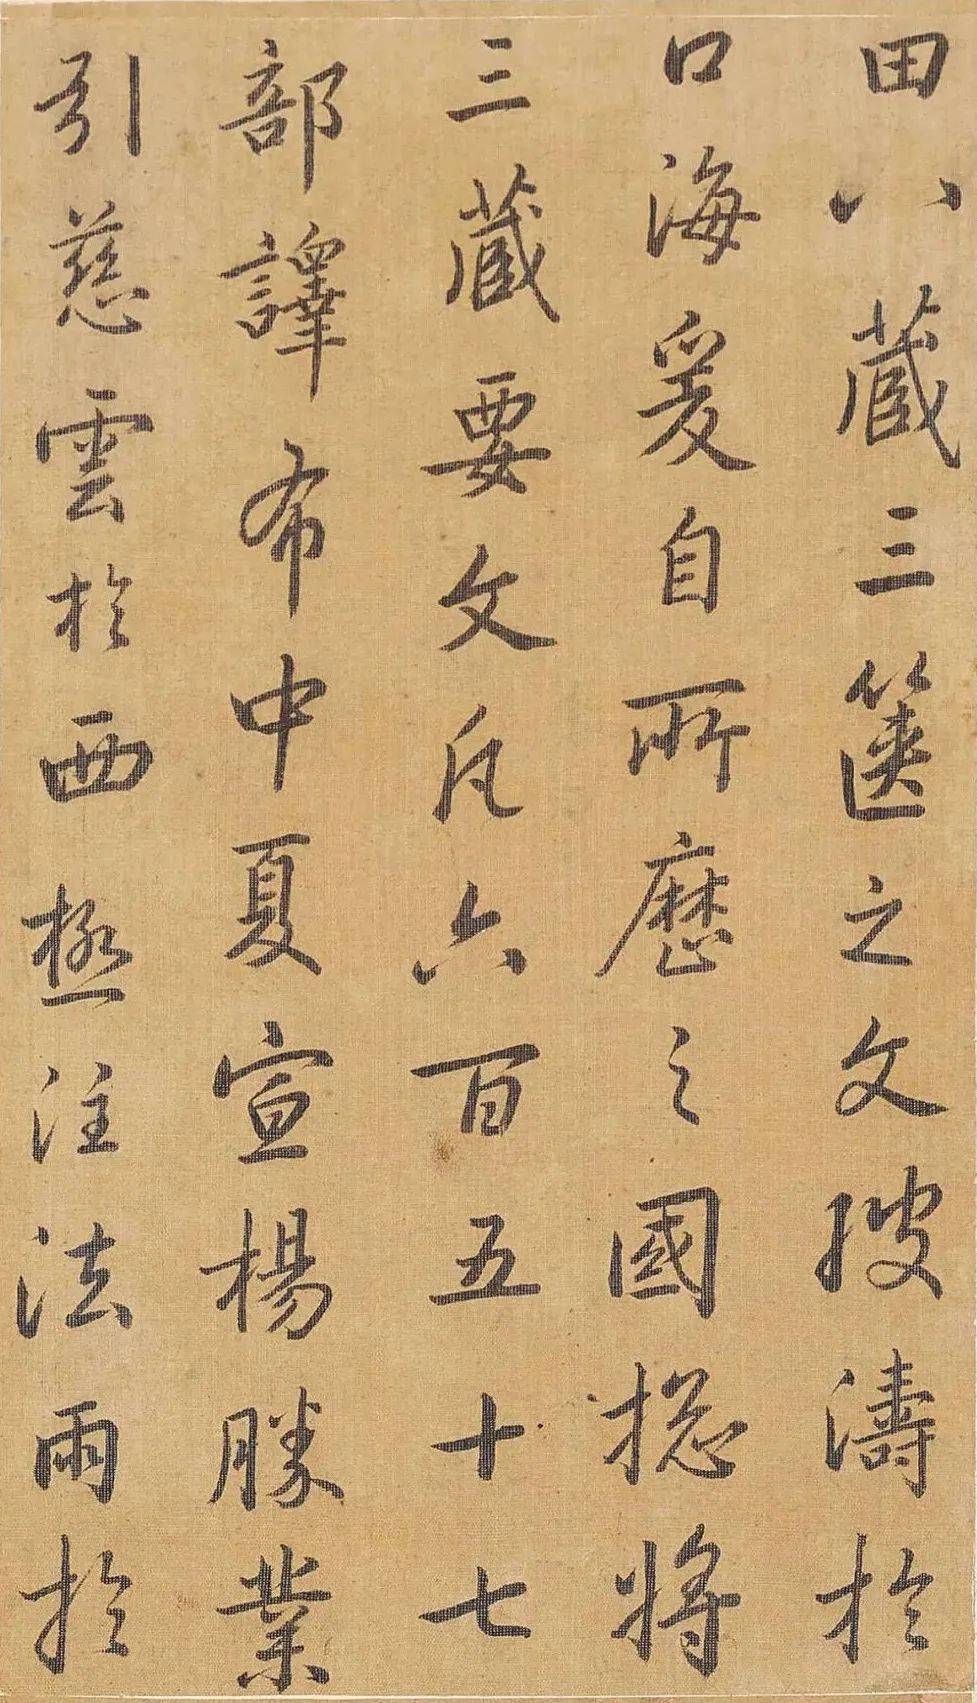 田八藏三箧之文波濤於
口海爰自所歷之國揔將
三藏要文凡六百五十七
部譯布中夏宣楊勝業
引慈雲於西極注法雨於